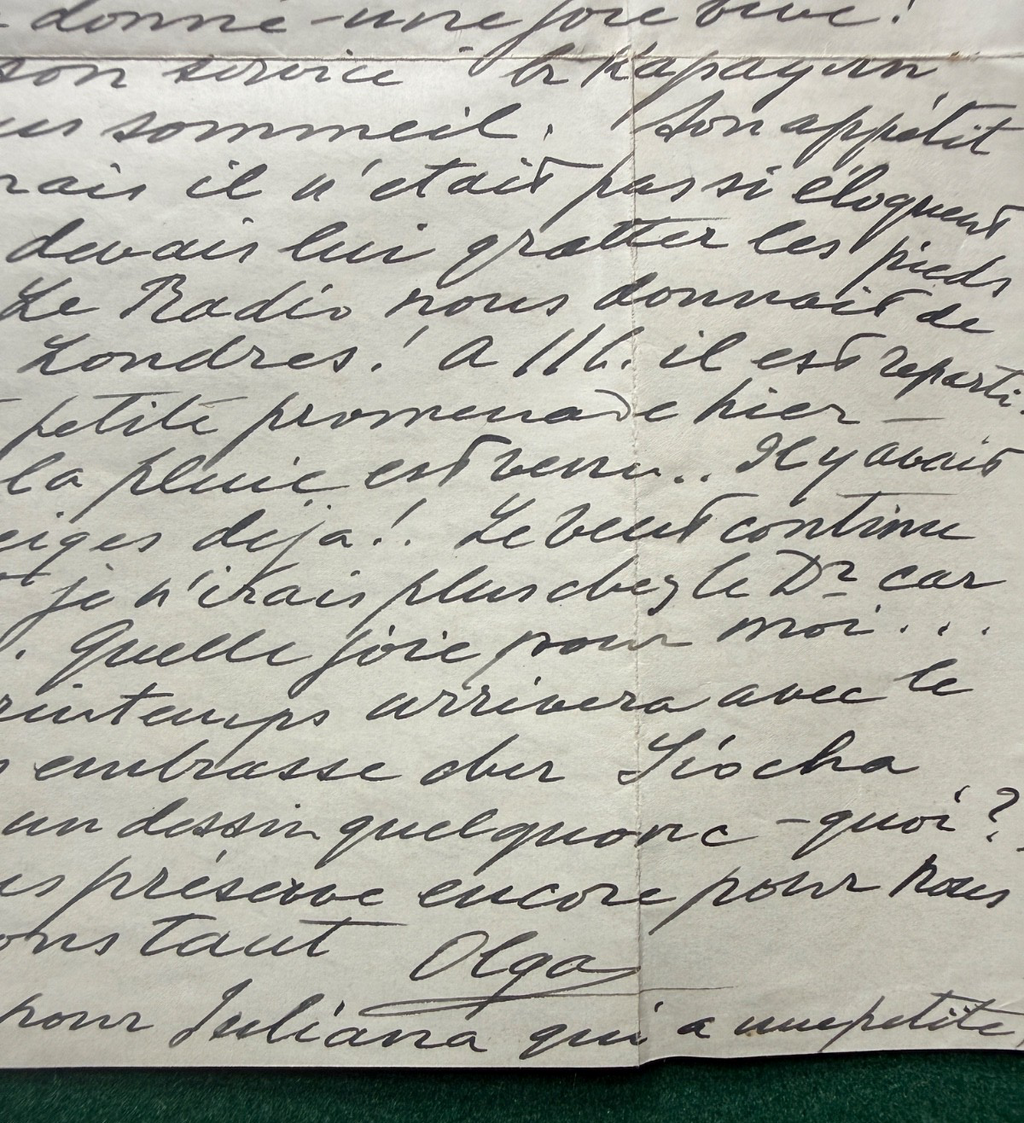 -donné -une joie vive!
son service le Карауул
us sommeil. Son appétit
rais il n'etait pas si éloquent
devais lui gratter les pieds
Le Radio nous donnait de
Londres! A 11h. il est reparti.
petite promenade hier —
la pluie est venu.. Il y avait
eiges deja!. Le vent continu
je n'irais plus chez le Dr car
. Quelle joie pour moi...
rintemps arrivera avec le
embrasse cher Liocha
un dessin quelquonc -quoi?
us préserve encore pour nous
ons tant Olga
pour Juliana qui a une petite